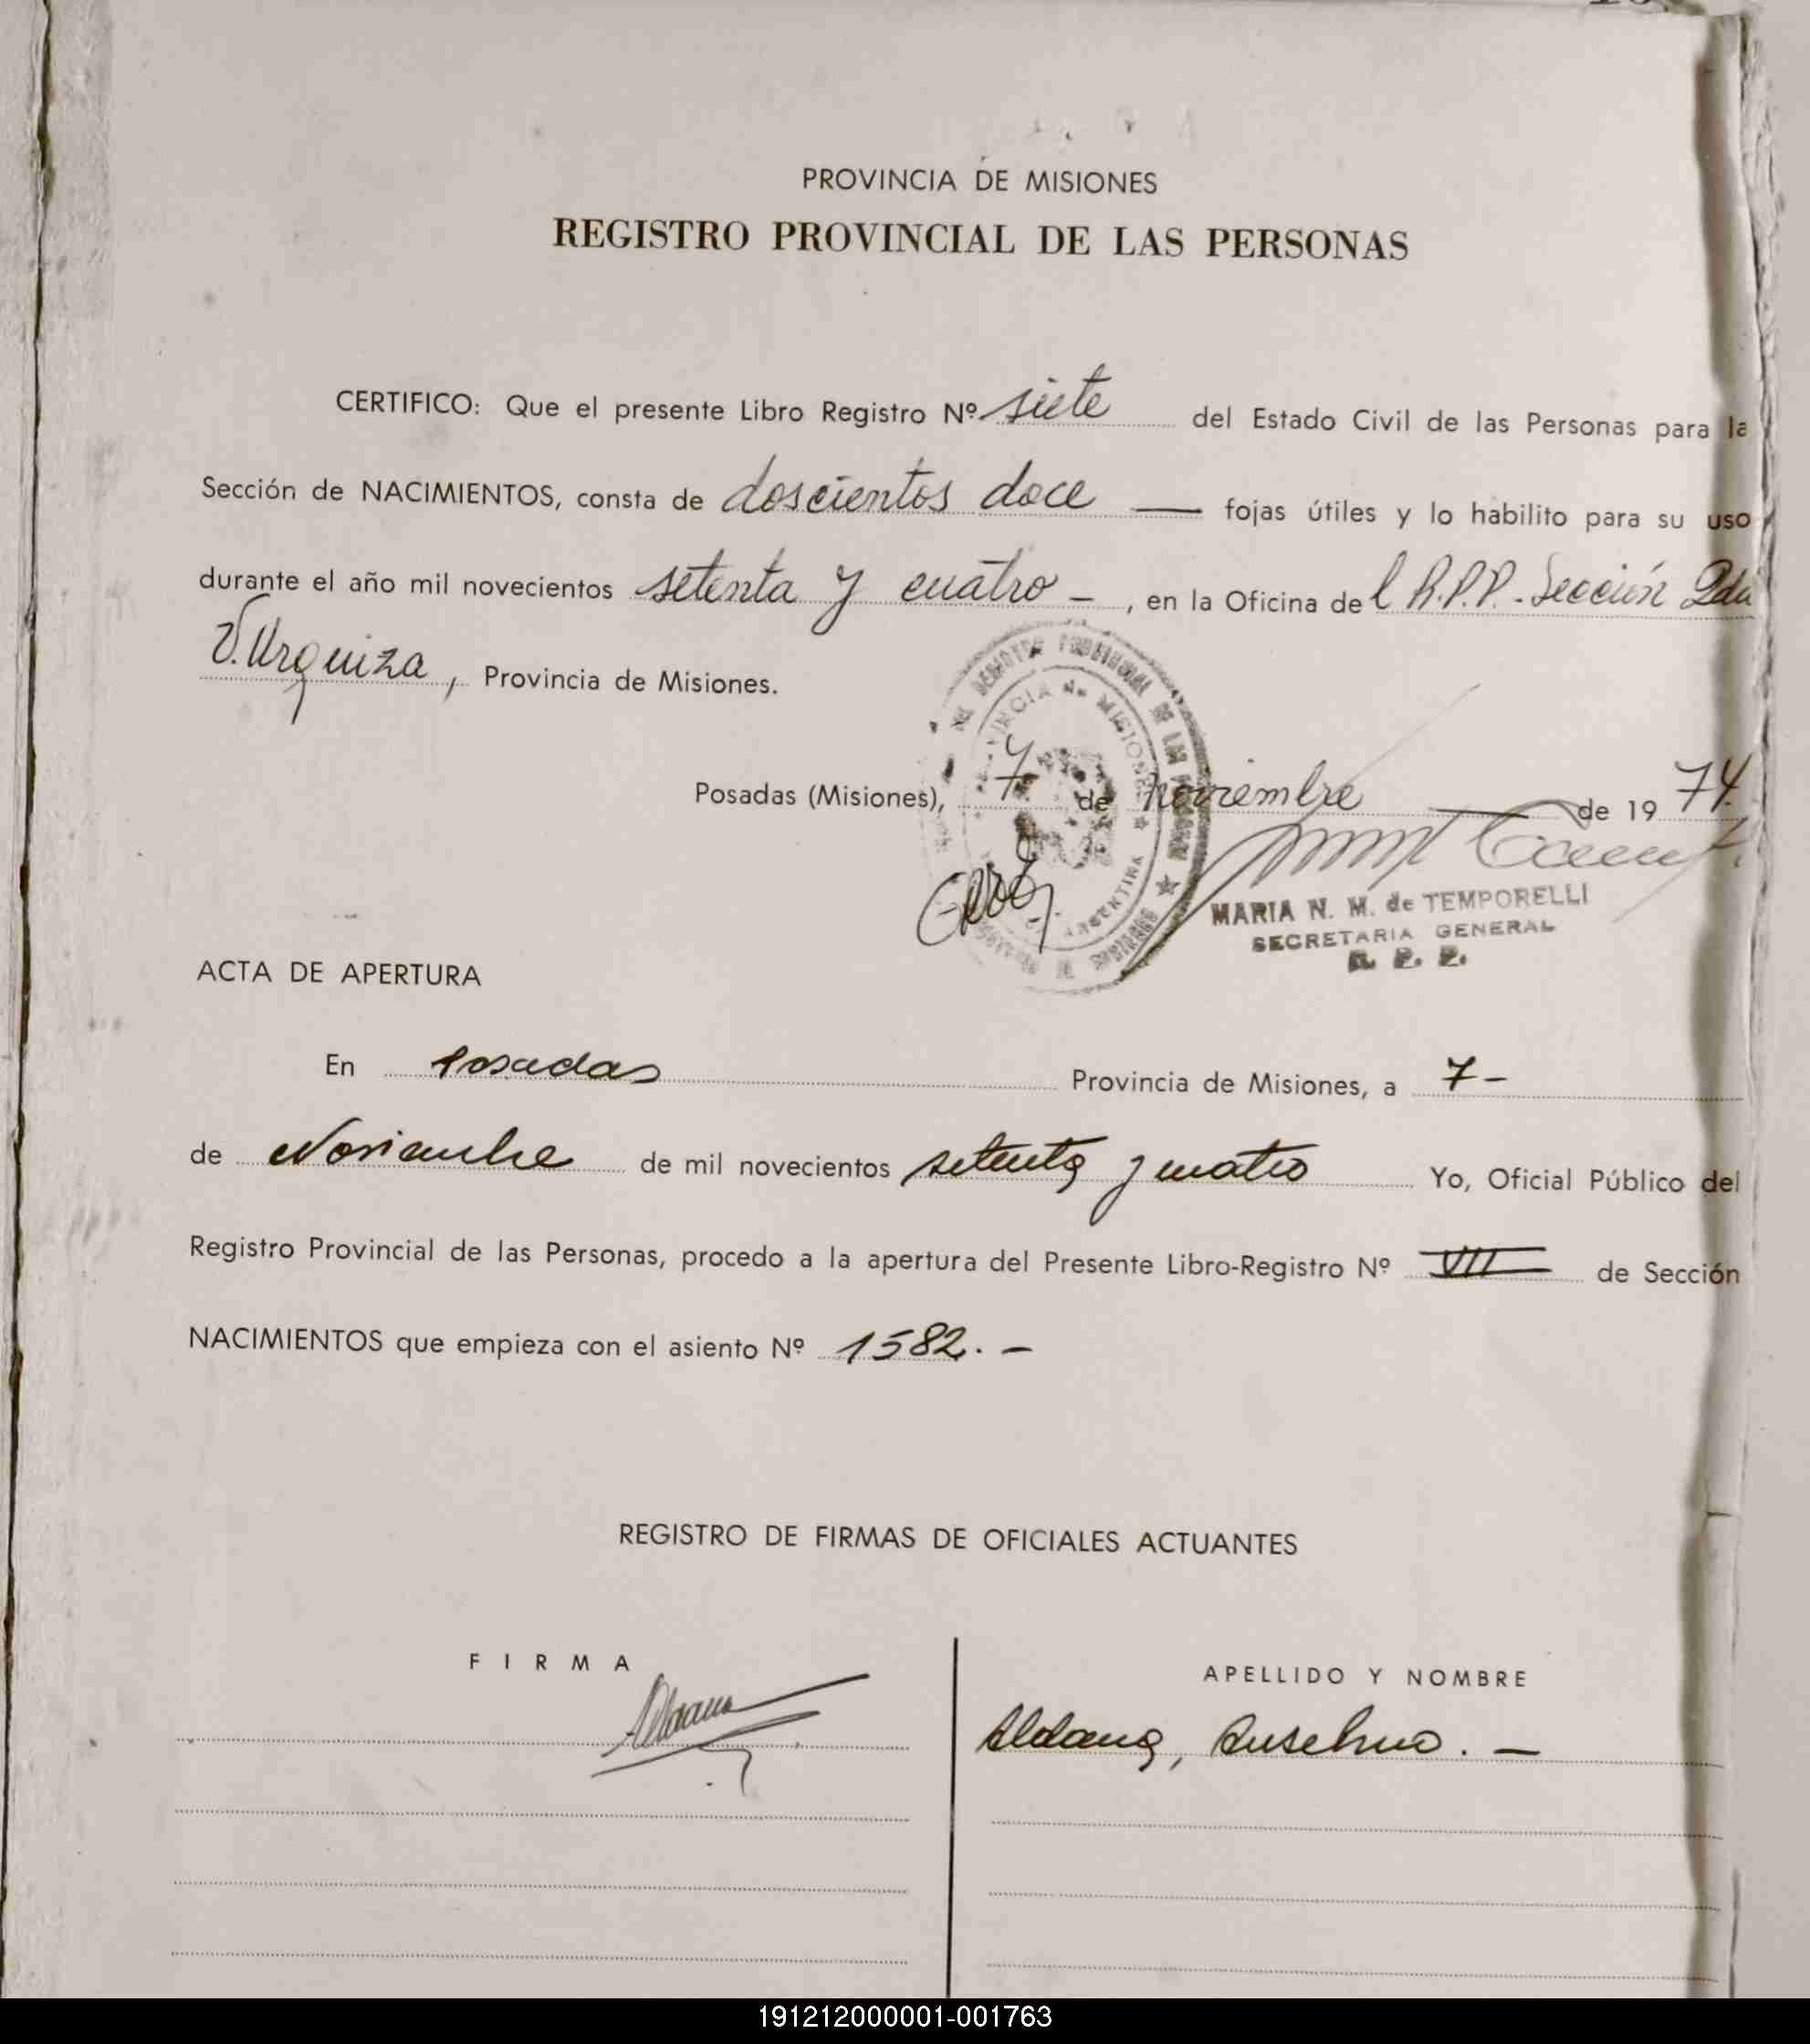 PROVINCIA DE MISIONES
REGISTRO PROVINCIAL DE LAS PERSONAS
CERTIFICO: Que el presente Libro Registro Nº siete del Estado Civil de las Personas para la
Sección de NACIMIENTOS, consta de doscientos doce — fojas útiles y lo habilito para su uso
durante el año mil novecientos setenta y cuatro - , en la Oficina del R.P.P. - Sección 2da
V. Urquiza, Provincia de Misiones.
Posadas (Misiones), 7 de noviembre — de 19 74.
MARIA N. M. de TEMPORELLI
SECRETARIA GENERAL
R. P. P.
ACTA DE APERTURA
En Posadas Provincia de Misiones, a 7-
de Noviembre de mil novecientos setenta y cuatro Yo, Oficial Público del
Registro Provincial de las Personas, procedo a la apertura del Presente Libro-Registro Nº VII de Sección
NACIMIENTOS que empieza con el asiento Nº 1582. -
REGISTRO DE FIRMAS DE OFICIALES ACTUANTES
FIRMA
APELLIDO Y NOMBRE
Aldana, Anselmo. -
191212000001-001763